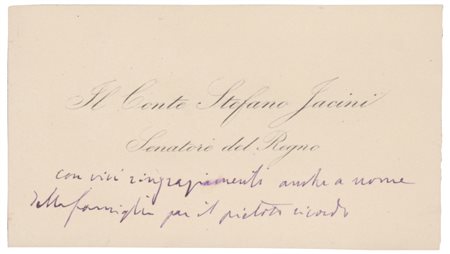 Il Conte Stefano Jacini
Senatore del Regno
con vivi ringraziamenti anche a nome
della famiglia per il pietoso ricordo